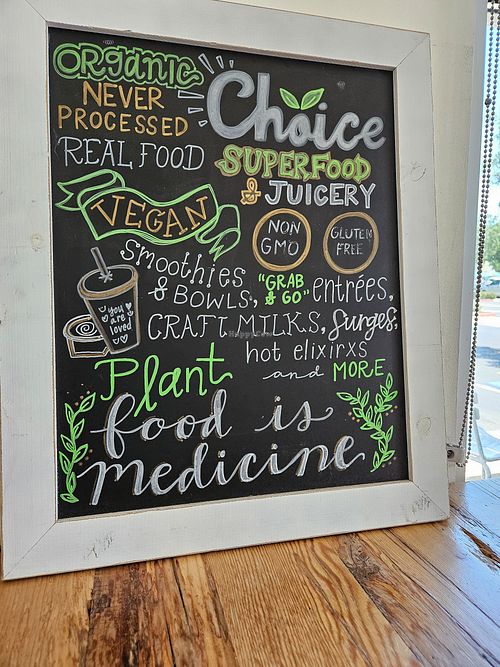 ORGANIC
NEVER
PROCESSED
REAL FOOD
Choice
SUPERFOOD
& JUICERY
VEGAN
NON
GMO
GLUTEN
FREE
smoothies
& BOWLS,
"GRAB
& GO"
entrées,
you
are
loved
CRAFT MILKS, Surges,
hot elixirxs
and MORE
Plant
food is
medicine
HappyCow